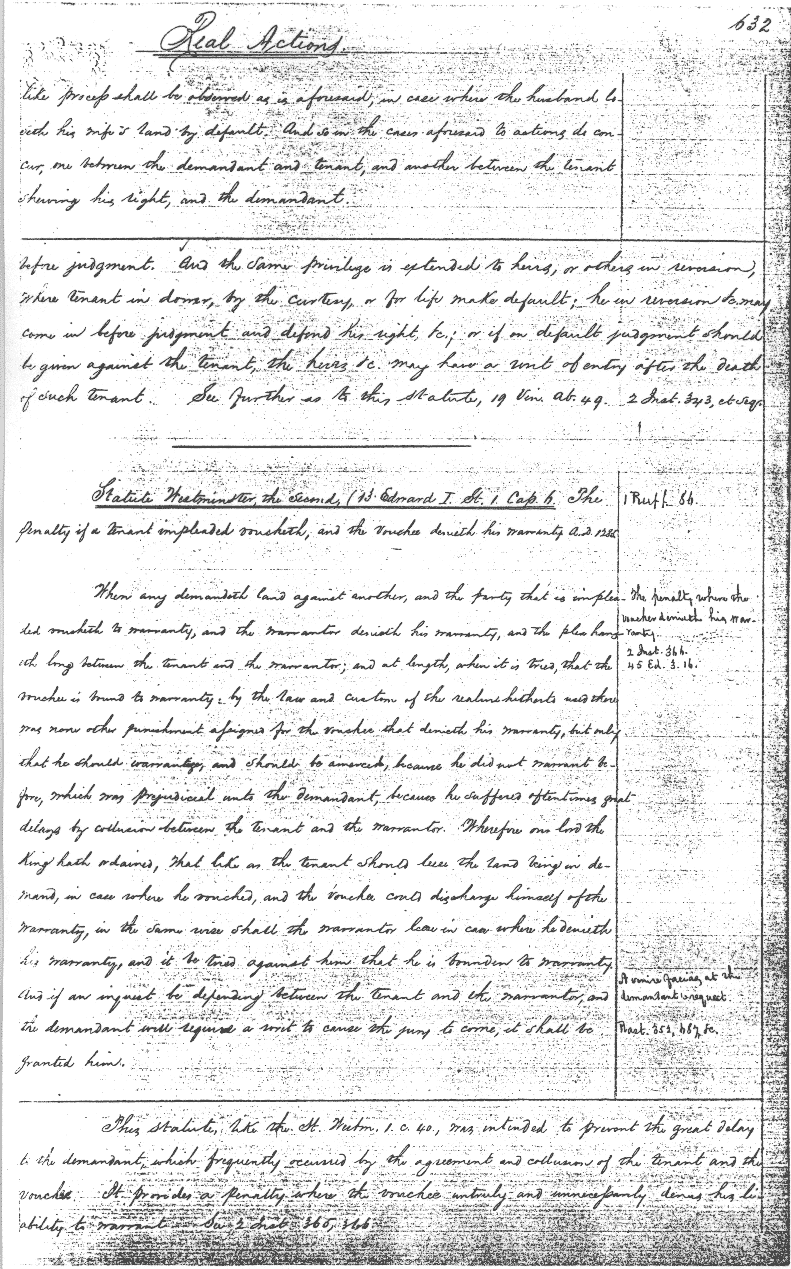 632
Real Actions.
like process shall be observed as is aforesaid, in case where the husband lo-
seth his wife's land by default. And so in the cases aforesaid to actions do con-
cur, one between the demandant and tenant, and another between the tenant
shewing his right, and the demandant.
before judgment. And the same privilege is extended to heirs, or others in reversion,
where tenant in dower, by the curtesy, or for life make default; he in reversion &c. may
come in before judgment and defend his right, &c.; or if on default judgment should
be given against the tenant, the heirs &c. may have a writ of entry after the death
of such tenant. See further as to this statute, 19 Vin. Ab. 49. 2 Inst. 343, et seq.
Statute Westminster, the second, (13 Edward I. St. 1. Cap. 6. The
penalty if a tenant impleaded voucheth, and the vouchee denieth his warranty A.D. 1285
1 Ruff. 86.
When any demandeth land against another, and the party that is implea-
ded voucheth to warranty, and the warrantor denieth his warranty, and the plea hang-
eth long between the tenant and the warrantor; and at length, when it is tried, that the
vouchee is bound to warranty; by the law and custom of the realm hitherto used there
was none other punishment assigned for the vouchee that denieth his warranty, but only
that he should warranty, and should be amerced, because he did not warrant be-
fore, which was prejudicial unto the demandant, because he suffered oftentimes great
delays by collusion between the tenant and the warrantor. Wherefore our lord the
King hath ordained, that like as the tenant should leese the land being in de-
mand, in case where he vouched, and the vouchee could discharge himself of the
warranty, in the same wise shall the warrantor leese in case where he denieth
his warranty, and it be tried against him that he is bounden to warranty
And if an inquest be depending between the tenant and the warrantor, and
the demandant will require a writ to cause the jury to come, it shall be
granted him.
The penalty where the
voucher denieth his war-
ranty.
2 Inst. 366.
45 Ed. 3. 16.
A venire facias at the
demandant's request
Rast. 353, 487, &c.
This statute, like the St. Westm. 1. c. 40., was intended to prevent the great delay
to the demandant, which frequently occurred by the agreement and collusion of the tenant and the
vouchee. It provides a penalty where the vouchee untruly and unnecessarily denies his li-
ability to warrant. See 2 Inst. 365, 366.